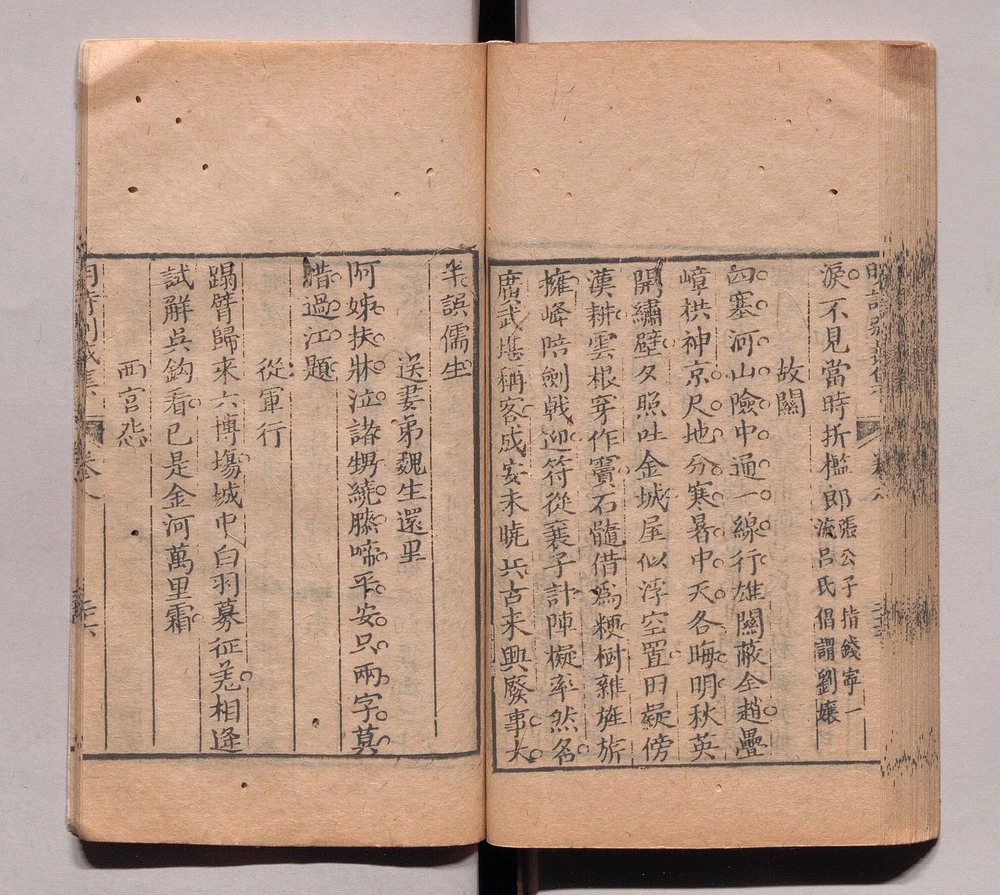 淚不見當時折檻郎張公子指錢寧一流呂氏倡謂劉孃
故關
四塞河山險中通一線行雄關蔽全趙疊
嶂拱神京尺地分寒暑中天各晦明秋英
開繡壁夕照吐金城屋似浮空置田疑傍
漢耕雲根穿作竇石髓借爲粳樹雜旌旂
擁峰陪劍戟迎符從襄子計陣擬率然名
廣武堪稱客成安未曉兵古來興廢事大
半誤儒生
送妻弟魏生還里
阿姊扶牀泣諸甥繞膝啼平安只兩字莫
惜過江題
從軍行
蹋臂歸來六博場城中白羽募征羌相逢
試解吳鈎看已是金河萬里霜
西宮怨
明詩別裁集 卷八